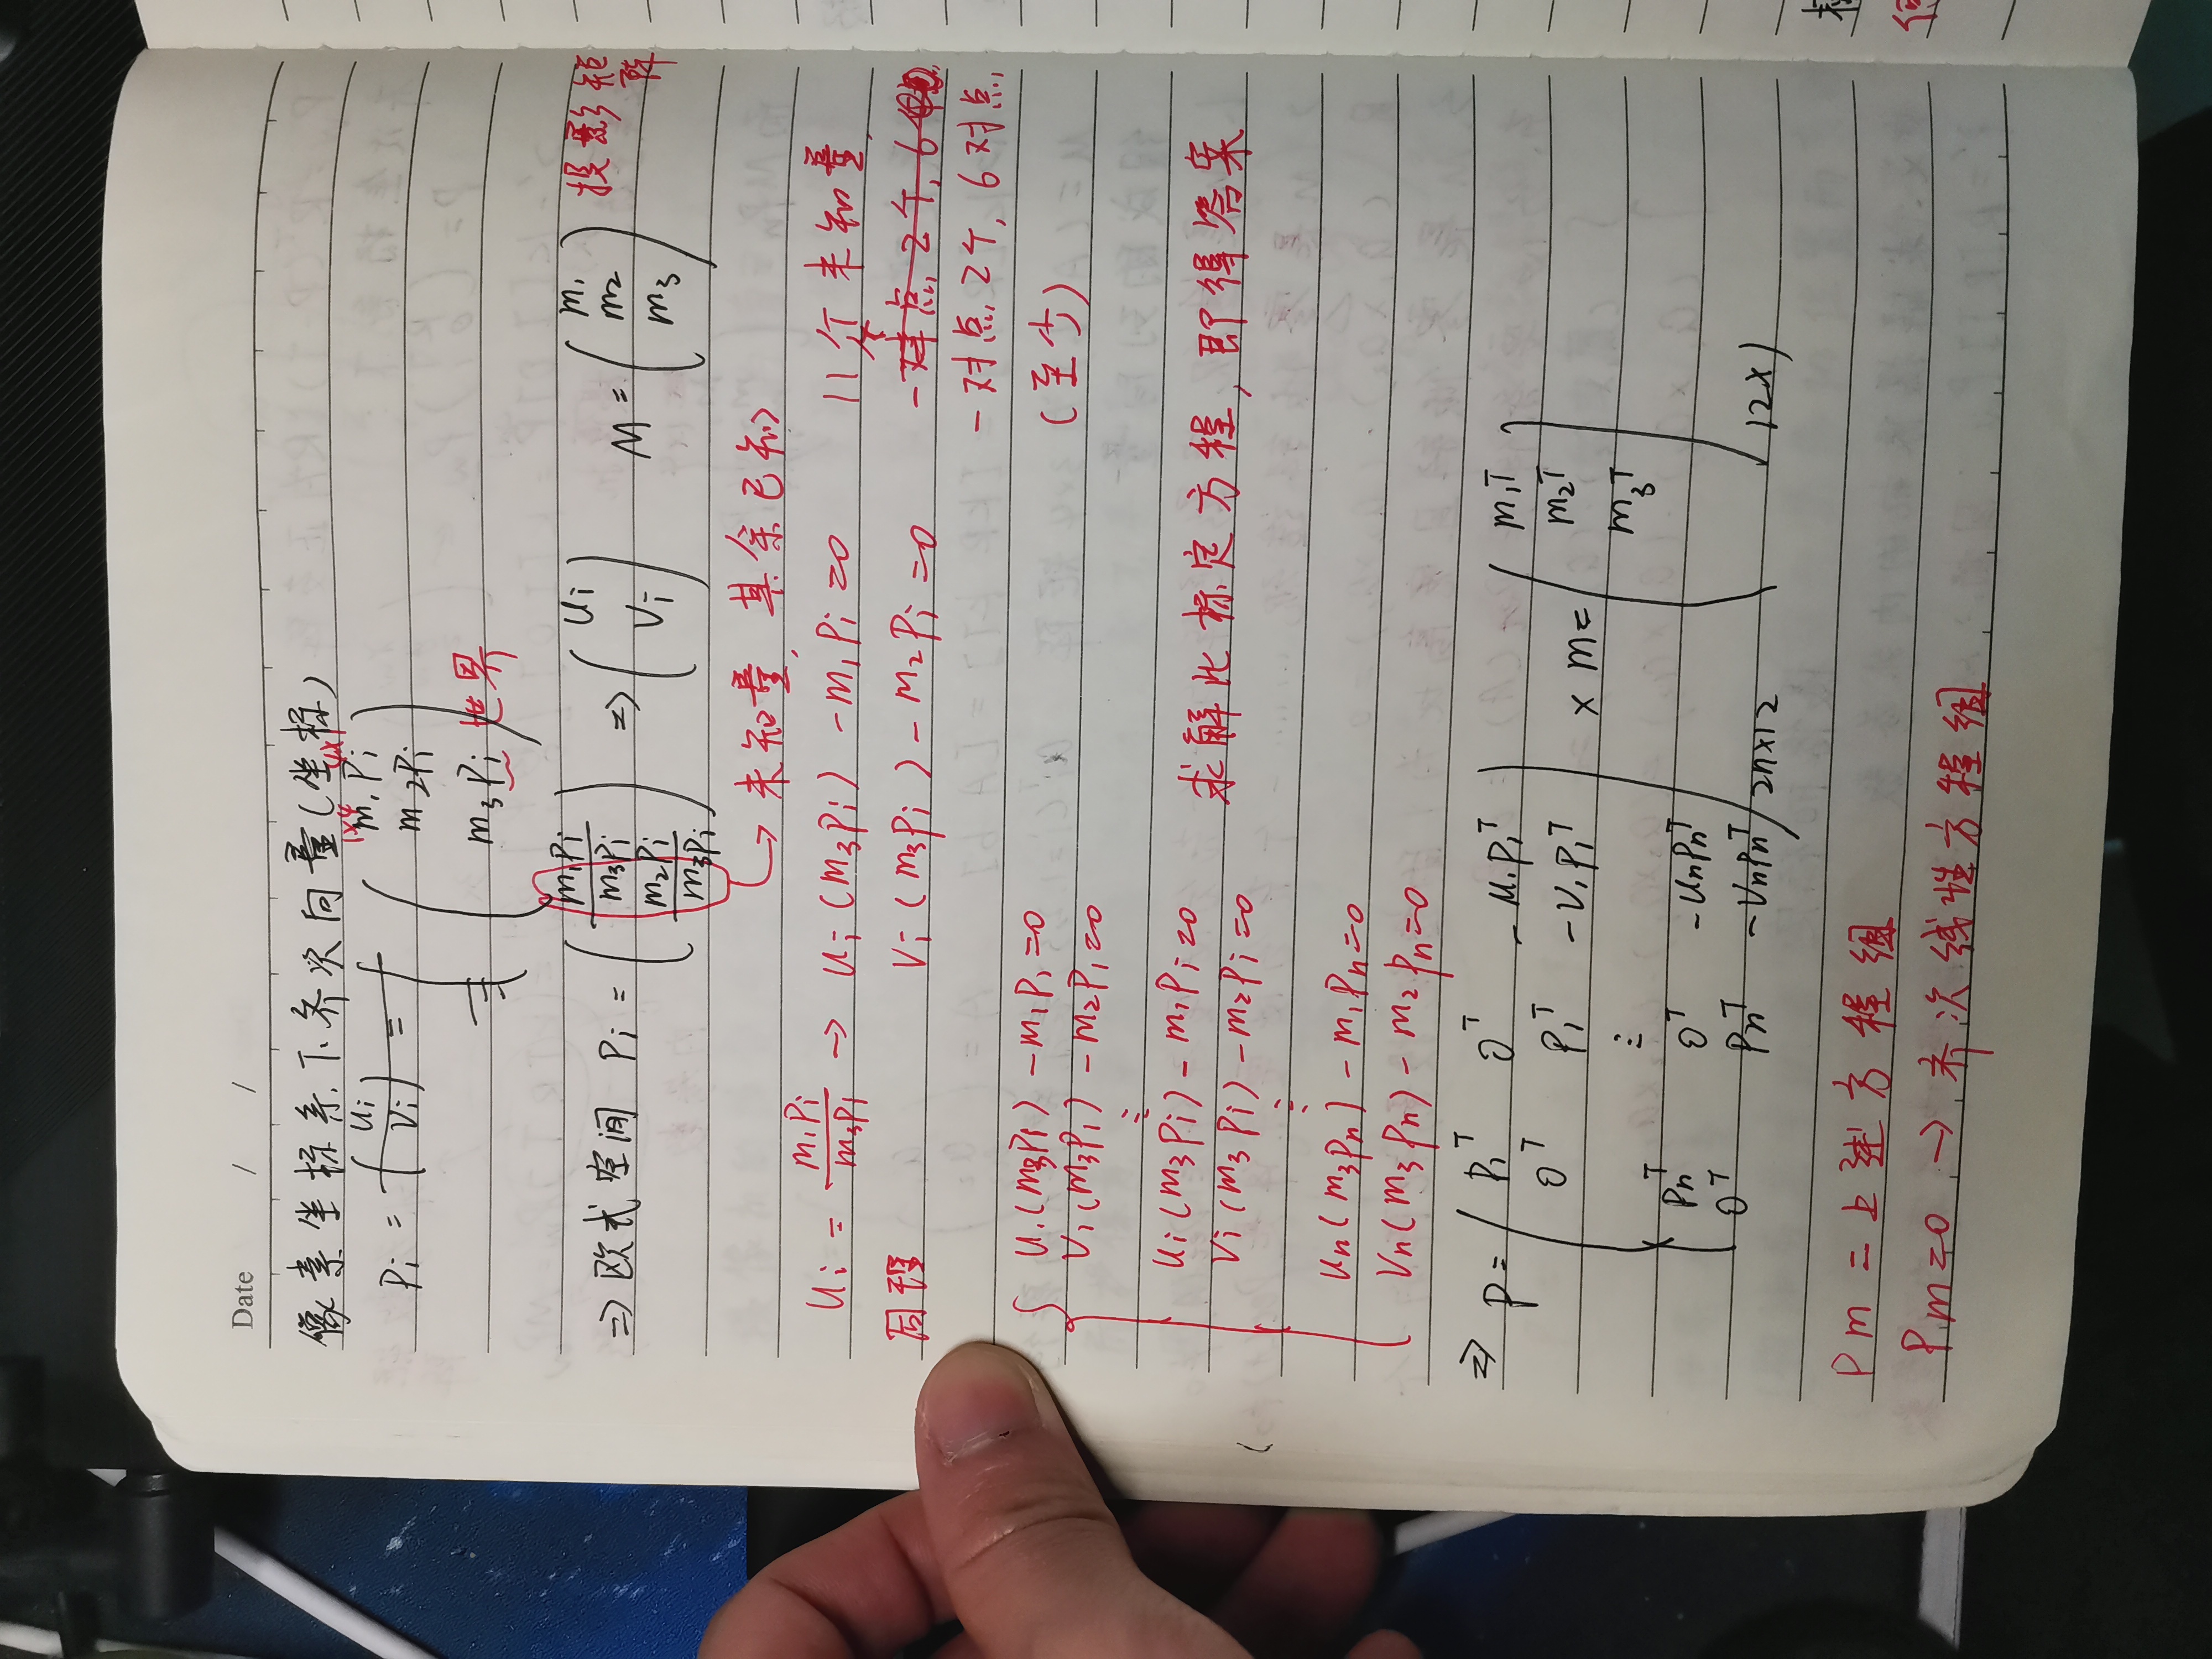 Date / /
像素坐标系下齐次向量(坐标)
Pi = (ui vi) = ( m1Pi m2Pi m3Pi ) 世界
⇒ 欧式空间 Pi = ( m1Pi/m3Pi m2Pi/m3Pi ) ⇒ ( ui vi ) M = ( m1 m2 m3 ) 投影矩阵
→ 未知量, 其余已知
ui = m1Pi/m3Pi → ui(m3Pi) - m1Pi = 0 11个未知量
同理 vi(m3Pi) - m2Pi = 0 一对点, 2个, 6
一对点, 2个, 6对点
(至少)
u1(m3P1) - m1P1 = 0
v1(m3P1) - m2P1 = 0
⋮
ui(m3Pi) - m1Pi = 0
vi(m3Pi) - m2Pi = 0
求解此标定方程, 即得答案
⋮
un(m3Pn) - m1Pn = 0
vn(m3Pn) - m2Pn = 0
⇒ P = ( P1ᵀ 0ᵀ -u1P1ᵀ
0ᵀ P1ᵀ -v1P1ᵀ
⋮
Pnᵀ 0ᵀ -unPnᵀ
0ᵀ Pnᵀ -vnPnᵀ )2n×12 × m = ( m1ᵀ m2ᵀ m3ᵀ )12×1
Pm = 上述方程组
Pm = 0 → 齐次线性方程组